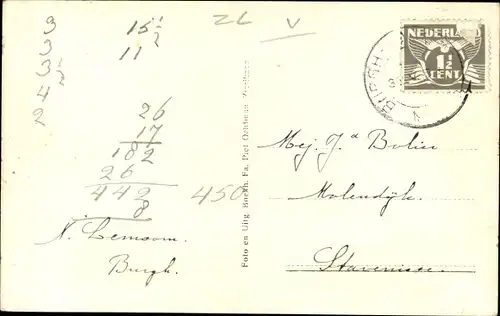 3
3
3
2 1/2
4
2
15 1/2
11
26
17
182
26
442
8
450
N. Lemsom.
Burgh.
ZL
V
Foto en Uitg. Boekh. Fa. Piet Ochtman Zierikzee
NEDERLAND
1½
CENT
BURGH
Mej. J.a Bolier
Molendijk.
Stavenisse.